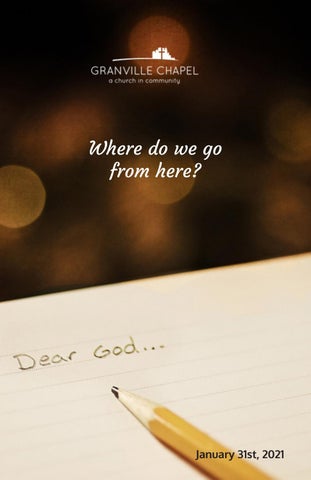 GRANVILLE CHAPEL
a church in community
Where do we go
from here?
Dear God...
January 31st, 2021